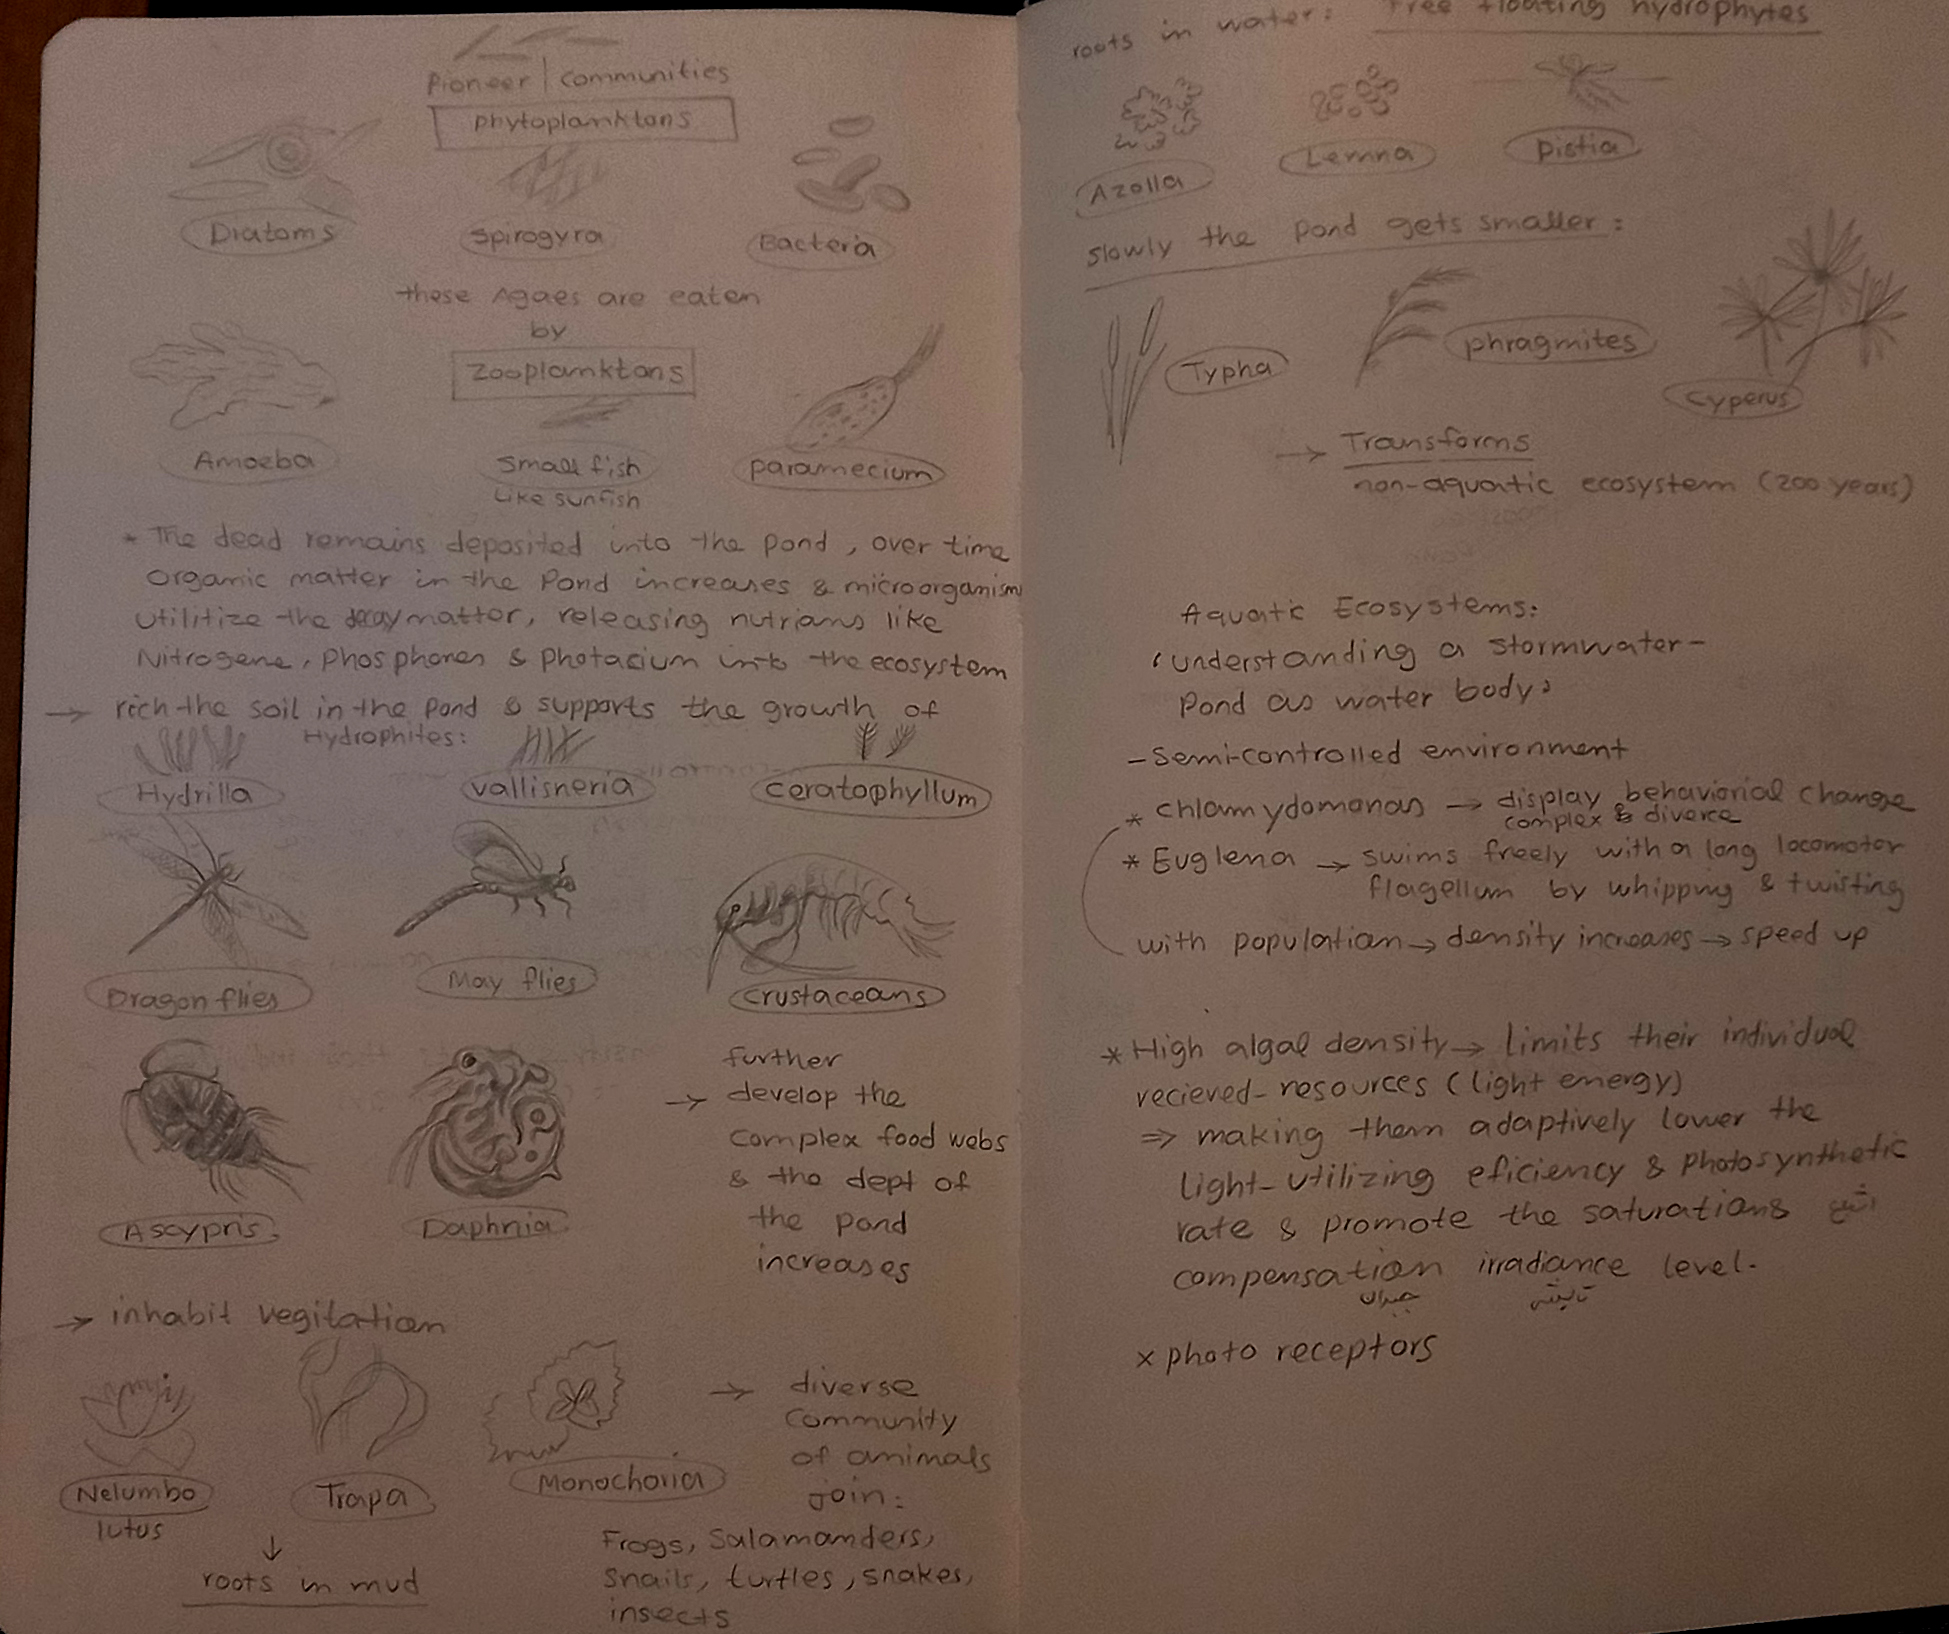 Pioneer | communities
phytoplanktons
Diatoms
Spirogyra
Bacteria
these Agaes are eaten
by
Zooplanktons
Amoeba
Small fish
Like sunfish
paramecium
* The dead remains deposited into the pond, over time
organic matter in the Pond increases & microorganism
utilitize the decay matter, releasing nutrians like
Nitrogene, Phosphores & Photacium into the ecosystem
→ rich the soil in the Pond & supports the growth of
Hydrophites:
Hydrilla
vallisneria
ceratophyllum
Dragon flies
May flies
crustaceans
further
→ develop the
complex food webs
& the dept of
the pond
increases
Ascypris
Daphnia
→ inhabit vegitation
Nelumbo
lutus
Trapa
Monochoria
→ diverse
community
of animals
join:
↓
roots in mud
Frogs, Salamanders,
Snails, turtles, snakes,
insects
roots in water: Free floating hydrophytes
Azolla
Lemna
Pistia
slowly the pond gets smaller:
Typha
phragmites
Cyperus
→ Transforms
non-aquatic ecosystem (200 years)
Aquatic Ecosystems:
'understanding a stormwater-
Pond as water body'
- Semi-controlled environment
* chlamydomonas → display behaviorial change
complex & diverce
* Euglena → swims freely with a long locomotor
flagellum by whipping & twisting
with population → density increases → speed up
* High algal density → limits their individual
recieved-resources (light energy)
⇒ making them adaptively lower the
light-utilizing eficiency & photosynthetic
rate & promote the saturations
compensation irradiance level.
جبران تابش
x photo receptors